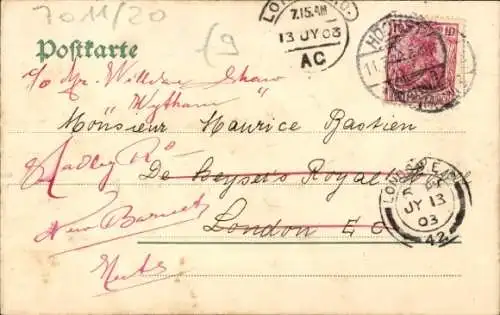 7011/20
(9
LONDON
7.15.AM
13 JY 03
AC
Postkarte
10
c/o Mr. Willden Shaw
"Wytham"
Monsieur Maurice Bastien
Hadley Rd
De Keyser's Royal
New Barnet
London E C
Herts
LONDON E.C.
JY 13
03
42